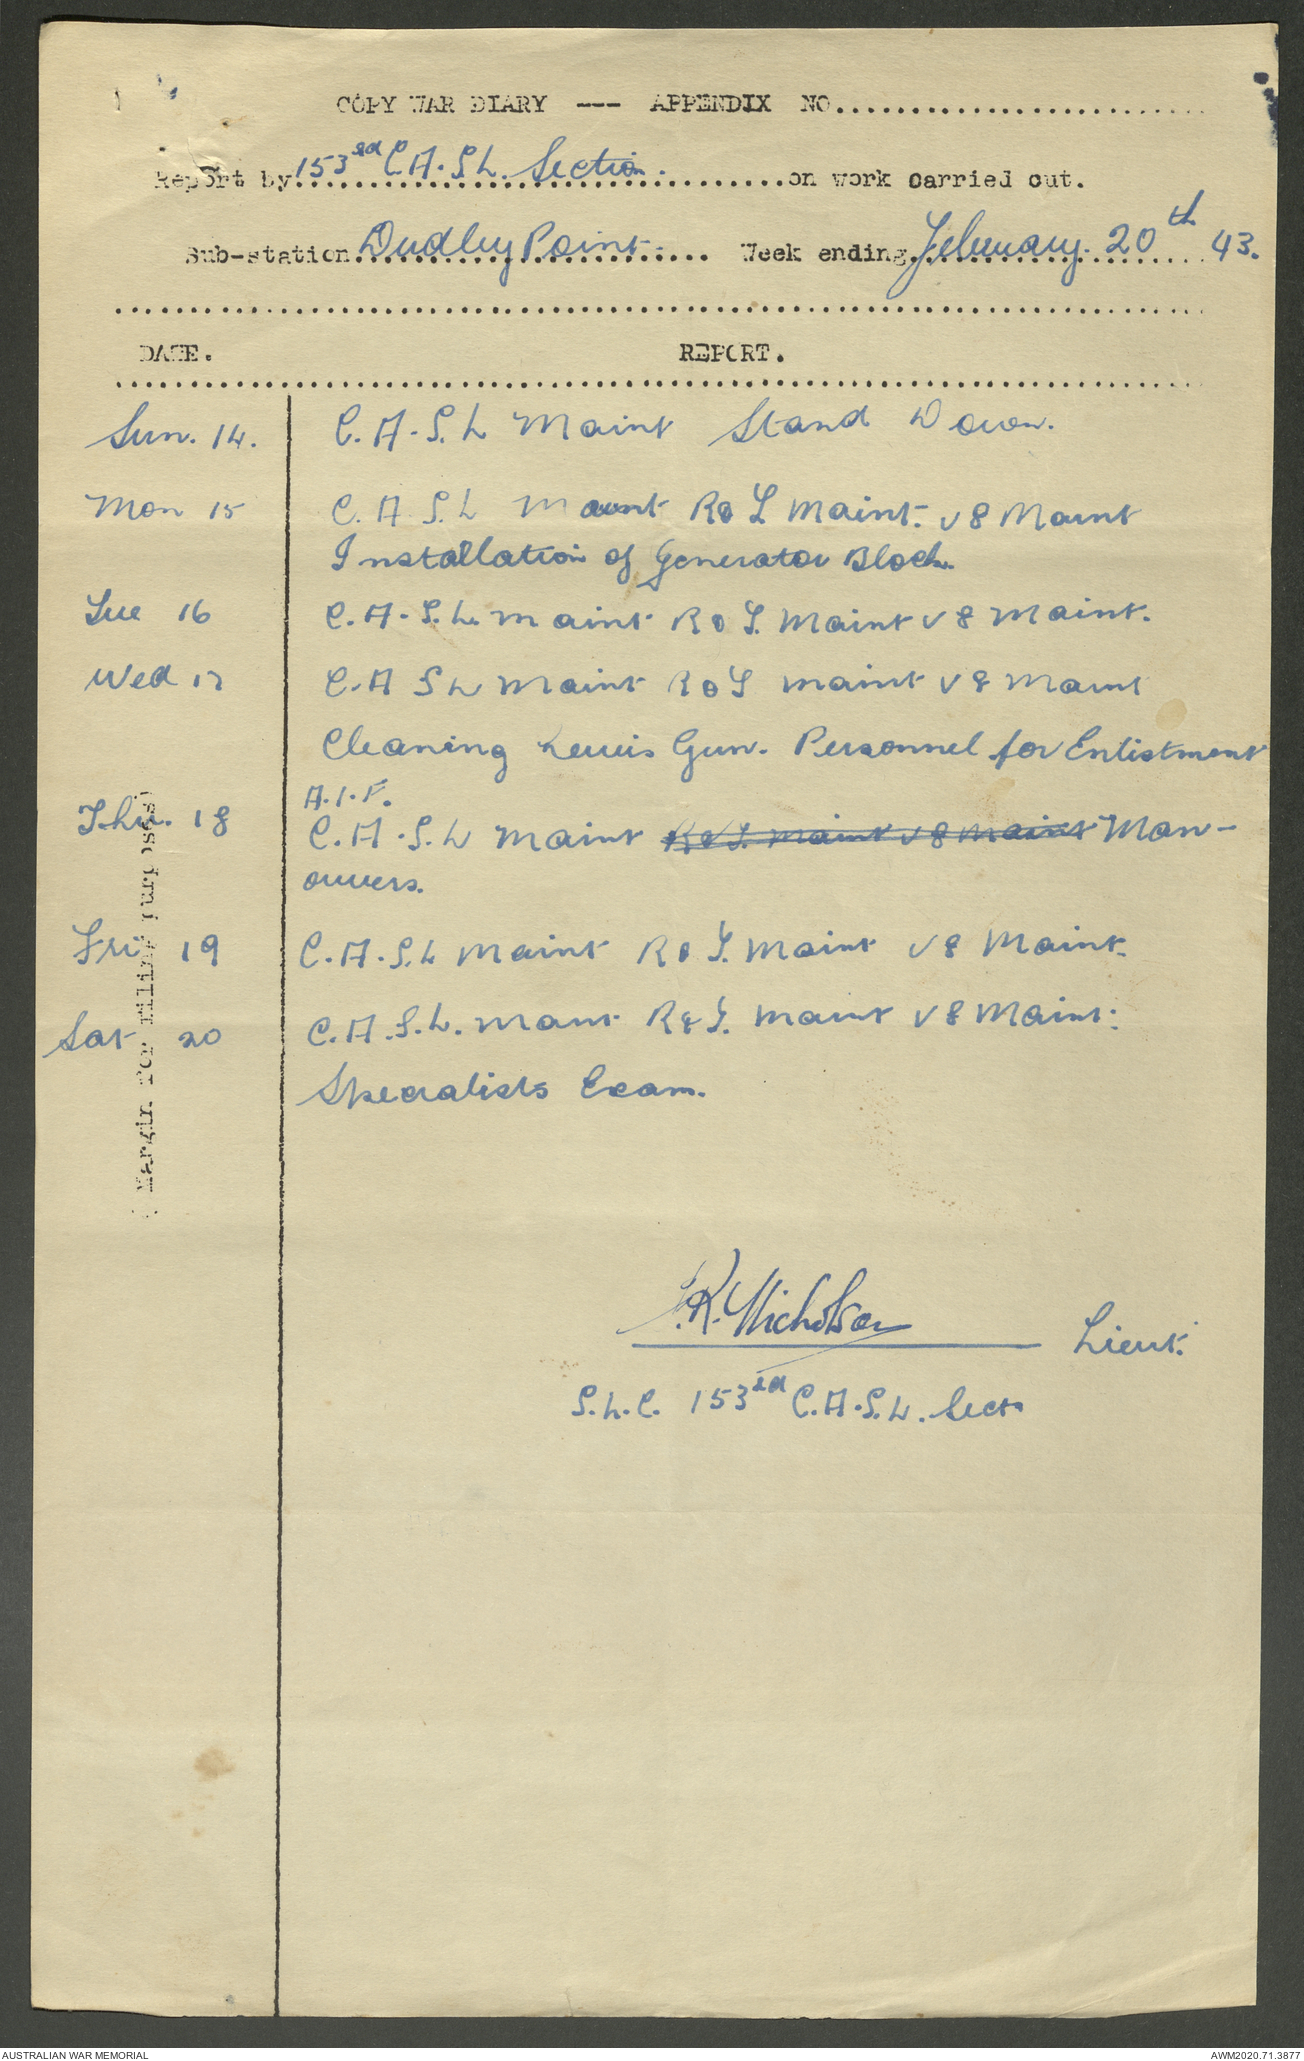 COPY WAR DIARY --- APPENDIX NO..........................
Report by 153rd C.A.S.L. Section. on work carried out.
Sub-station Dudley Point. Week ending February 20th 43.
DATE. REPORT.
Sun. 14. C.A.S.L Maint Stand Down.
Mon 15 C.A S.L Maint R & L Maint. V 8 Maint
Installation of Generator Block.
Tue 16 C.A.S.L. Maint R & L. Maint V 8 Maint.
Wed 17 C.A S L Maint R & L Maint V 8 Maint
Cleaning Lewis Gun. Personnel for Enlistment
A.I.F.
Thu. 18 C.A.S.L Maint R & L. Maint V 8 Maint Man-
ouvers.
Fri 19 C.A.S.L Maint R & L. Maint V 8 Maint.
Sat 20 C.A.S.L. Mant R & L. Maint V 8 Maint.
Specialists Exam.
(Margin for filing purposes)
K. Nicholson Lieut.
S.L.C. 153rd C.A.S.L. Sect.
AUSTRALIAN WAR MEMORIAL AWM2020.71.3877